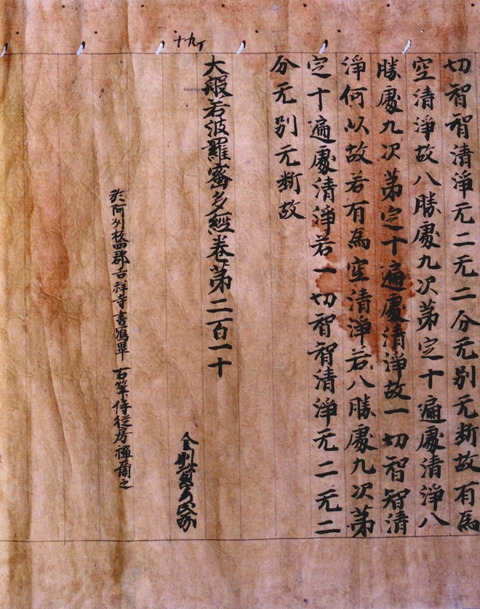 切智智清淨无二无二分无別无斷故有為
空清淨故八勝處九次第定十遍處清淨八
勝處九次第定十遍處清淨故一切智智清
淨何以故若有為空清淨若八勝處九次第
定十遍處清淨若一切智智清淨无二无二
分无別无斷故
大般若波羅蜜多經卷第二百一十
於阿州板四郡吉祥寺書寫畢 右筆侍從房